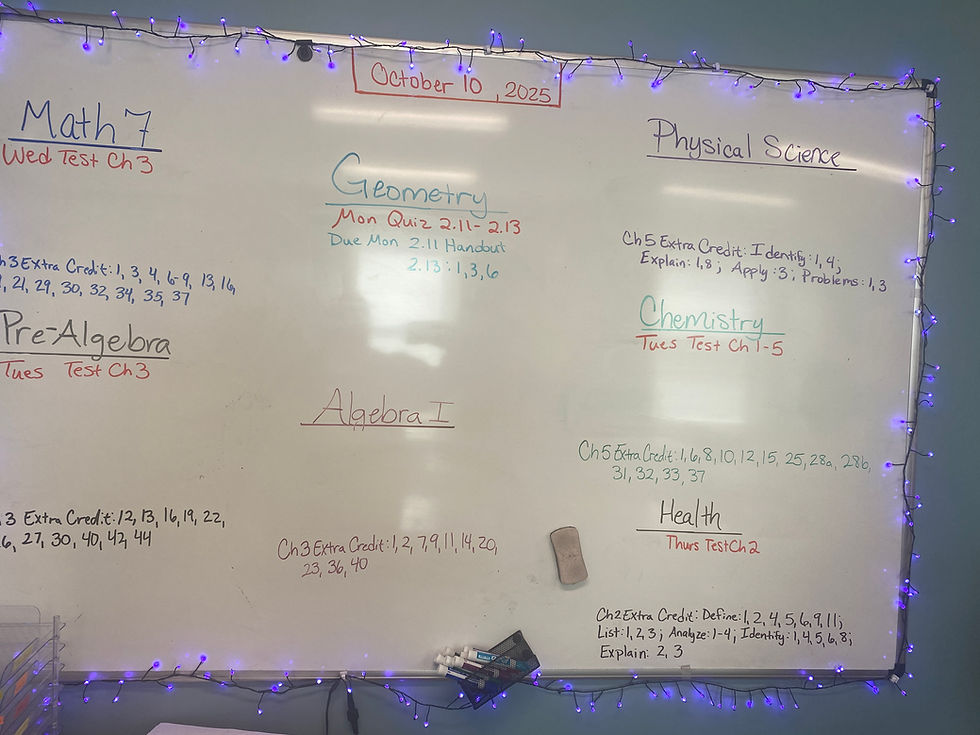 October 10, 2025
Math 7
Wed Test Ch 3
3 Extra Credit: 1, 3, 4, 6-9, 13, 16,
21, 29, 30, 32, 34, 35, 37
Pre-Algebra
Tues Test Ch 3
3 Extra Credit: 12, 13, 16, 19, 22,
27, 30, 40, 42, 44
Geometry
Mon Quiz 2.11-2.13
Due Mon 2.11 Handout
2.13: 1, 3, 6
Algebra I
Ch 3 Extra Credit: 1, 2, 7, 9, 11, 14, 20,
23, 36, 40
Physical Science
Ch 5 Extra Credit: Identify: 1, 4;
Explain: 1, 8; Apply: 3; Problems: 1, 3
Chemistry
Tues Test Ch 1-5
Ch 5 Extra Credit: 1, 6, 8, 10, 12, 15, 25, 28a, 28b,
31, 32, 33, 37
Health
Thurs Test Ch 2
Ch 2 Extra Credit: Define: 1, 2, 4, 5, 6, 9, 11;
List: 1, 2, 3; Analyze: 1-4; Identify: 1, 4, 5, 6, 8;
Explain: 2, 3